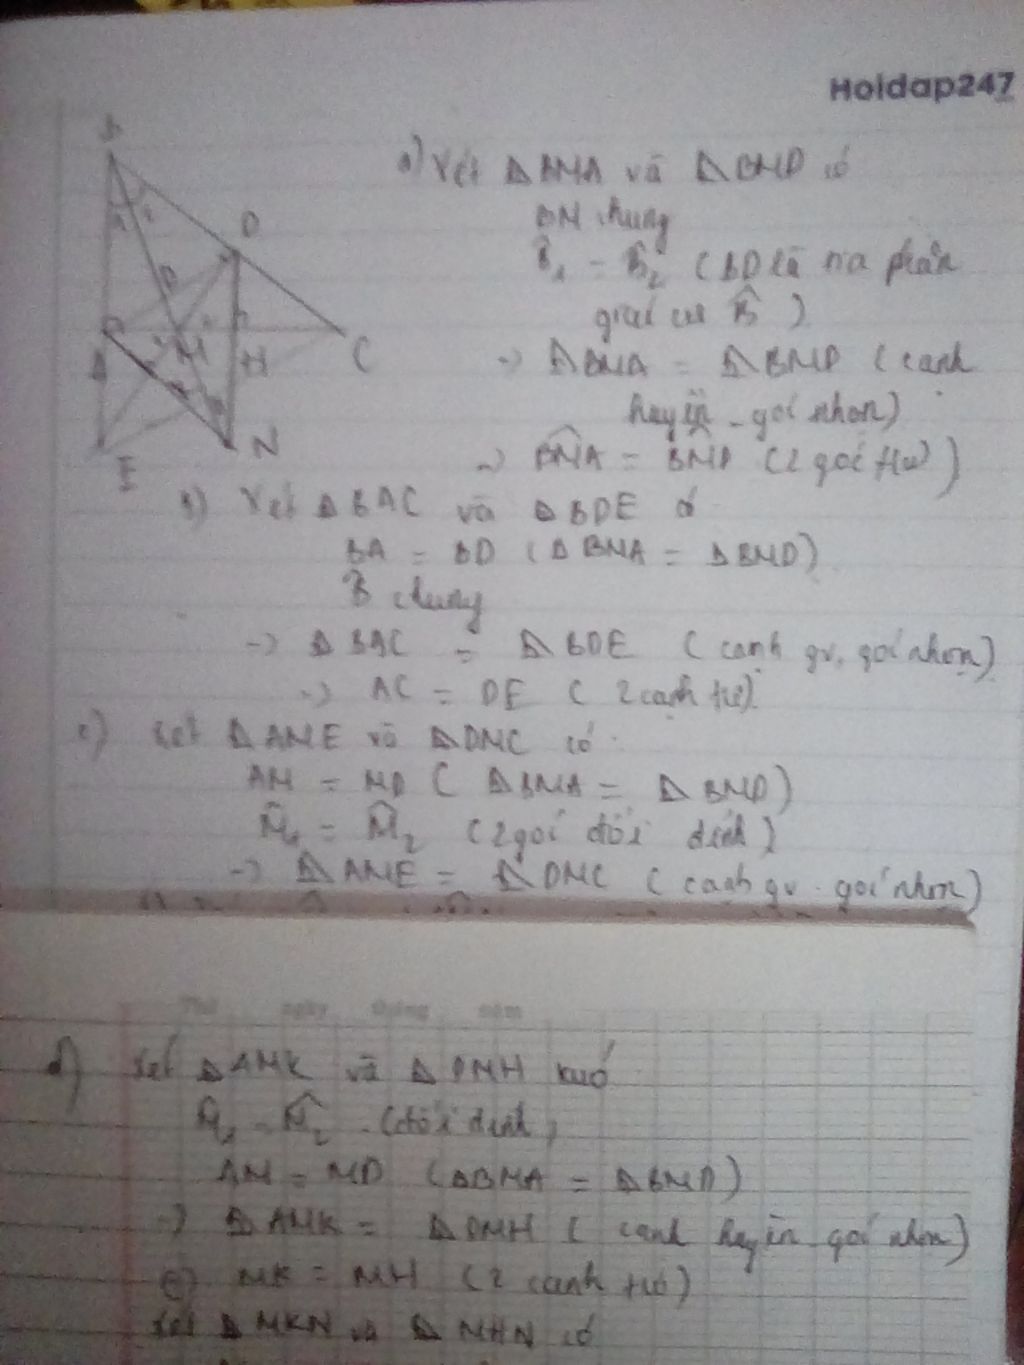 Hoidap247
B
D
A
M
H
C
E
N
a) Xét ΔBMA và ΔBMD có
BM chung
B̂1 = B̂2 (BD là tia phân
giác của B̂)
-> ΔBMA = ΔBMD (cạnh
huyền - góc nhọn)
-> BMA = BMD (2 góc tư)
b) Xét ΔBAC và ΔBDE có
BA = BD (ΔBMA = ΔBMD)
B̂ chung
-> ΔBAC = ΔBDE (cạnh gv, góc nhọn)
-> AC = DE (2 cạnh tư)
c) Xét ΔAME và ΔDMC có
AM = MD (ΔBMA = ΔBMD)
M̂1 = M̂2 (2 góc đối đỉnh)
-> ΔAME = ΔDMC (cạnh gv - góc nhọn)
Thứ ngày tháng năm
d) Xét ΔAMK và ΔDMH
M̂1 = M̂2 (đối đỉnh)
AM = MD (ΔBMA = ΔBMD)
-> ΔAMK = ΔDMH (cạnh huyền - góc nhọn)
MK = MH (2 cạnh tư)
Xét ΔMKN và ΔMHN có